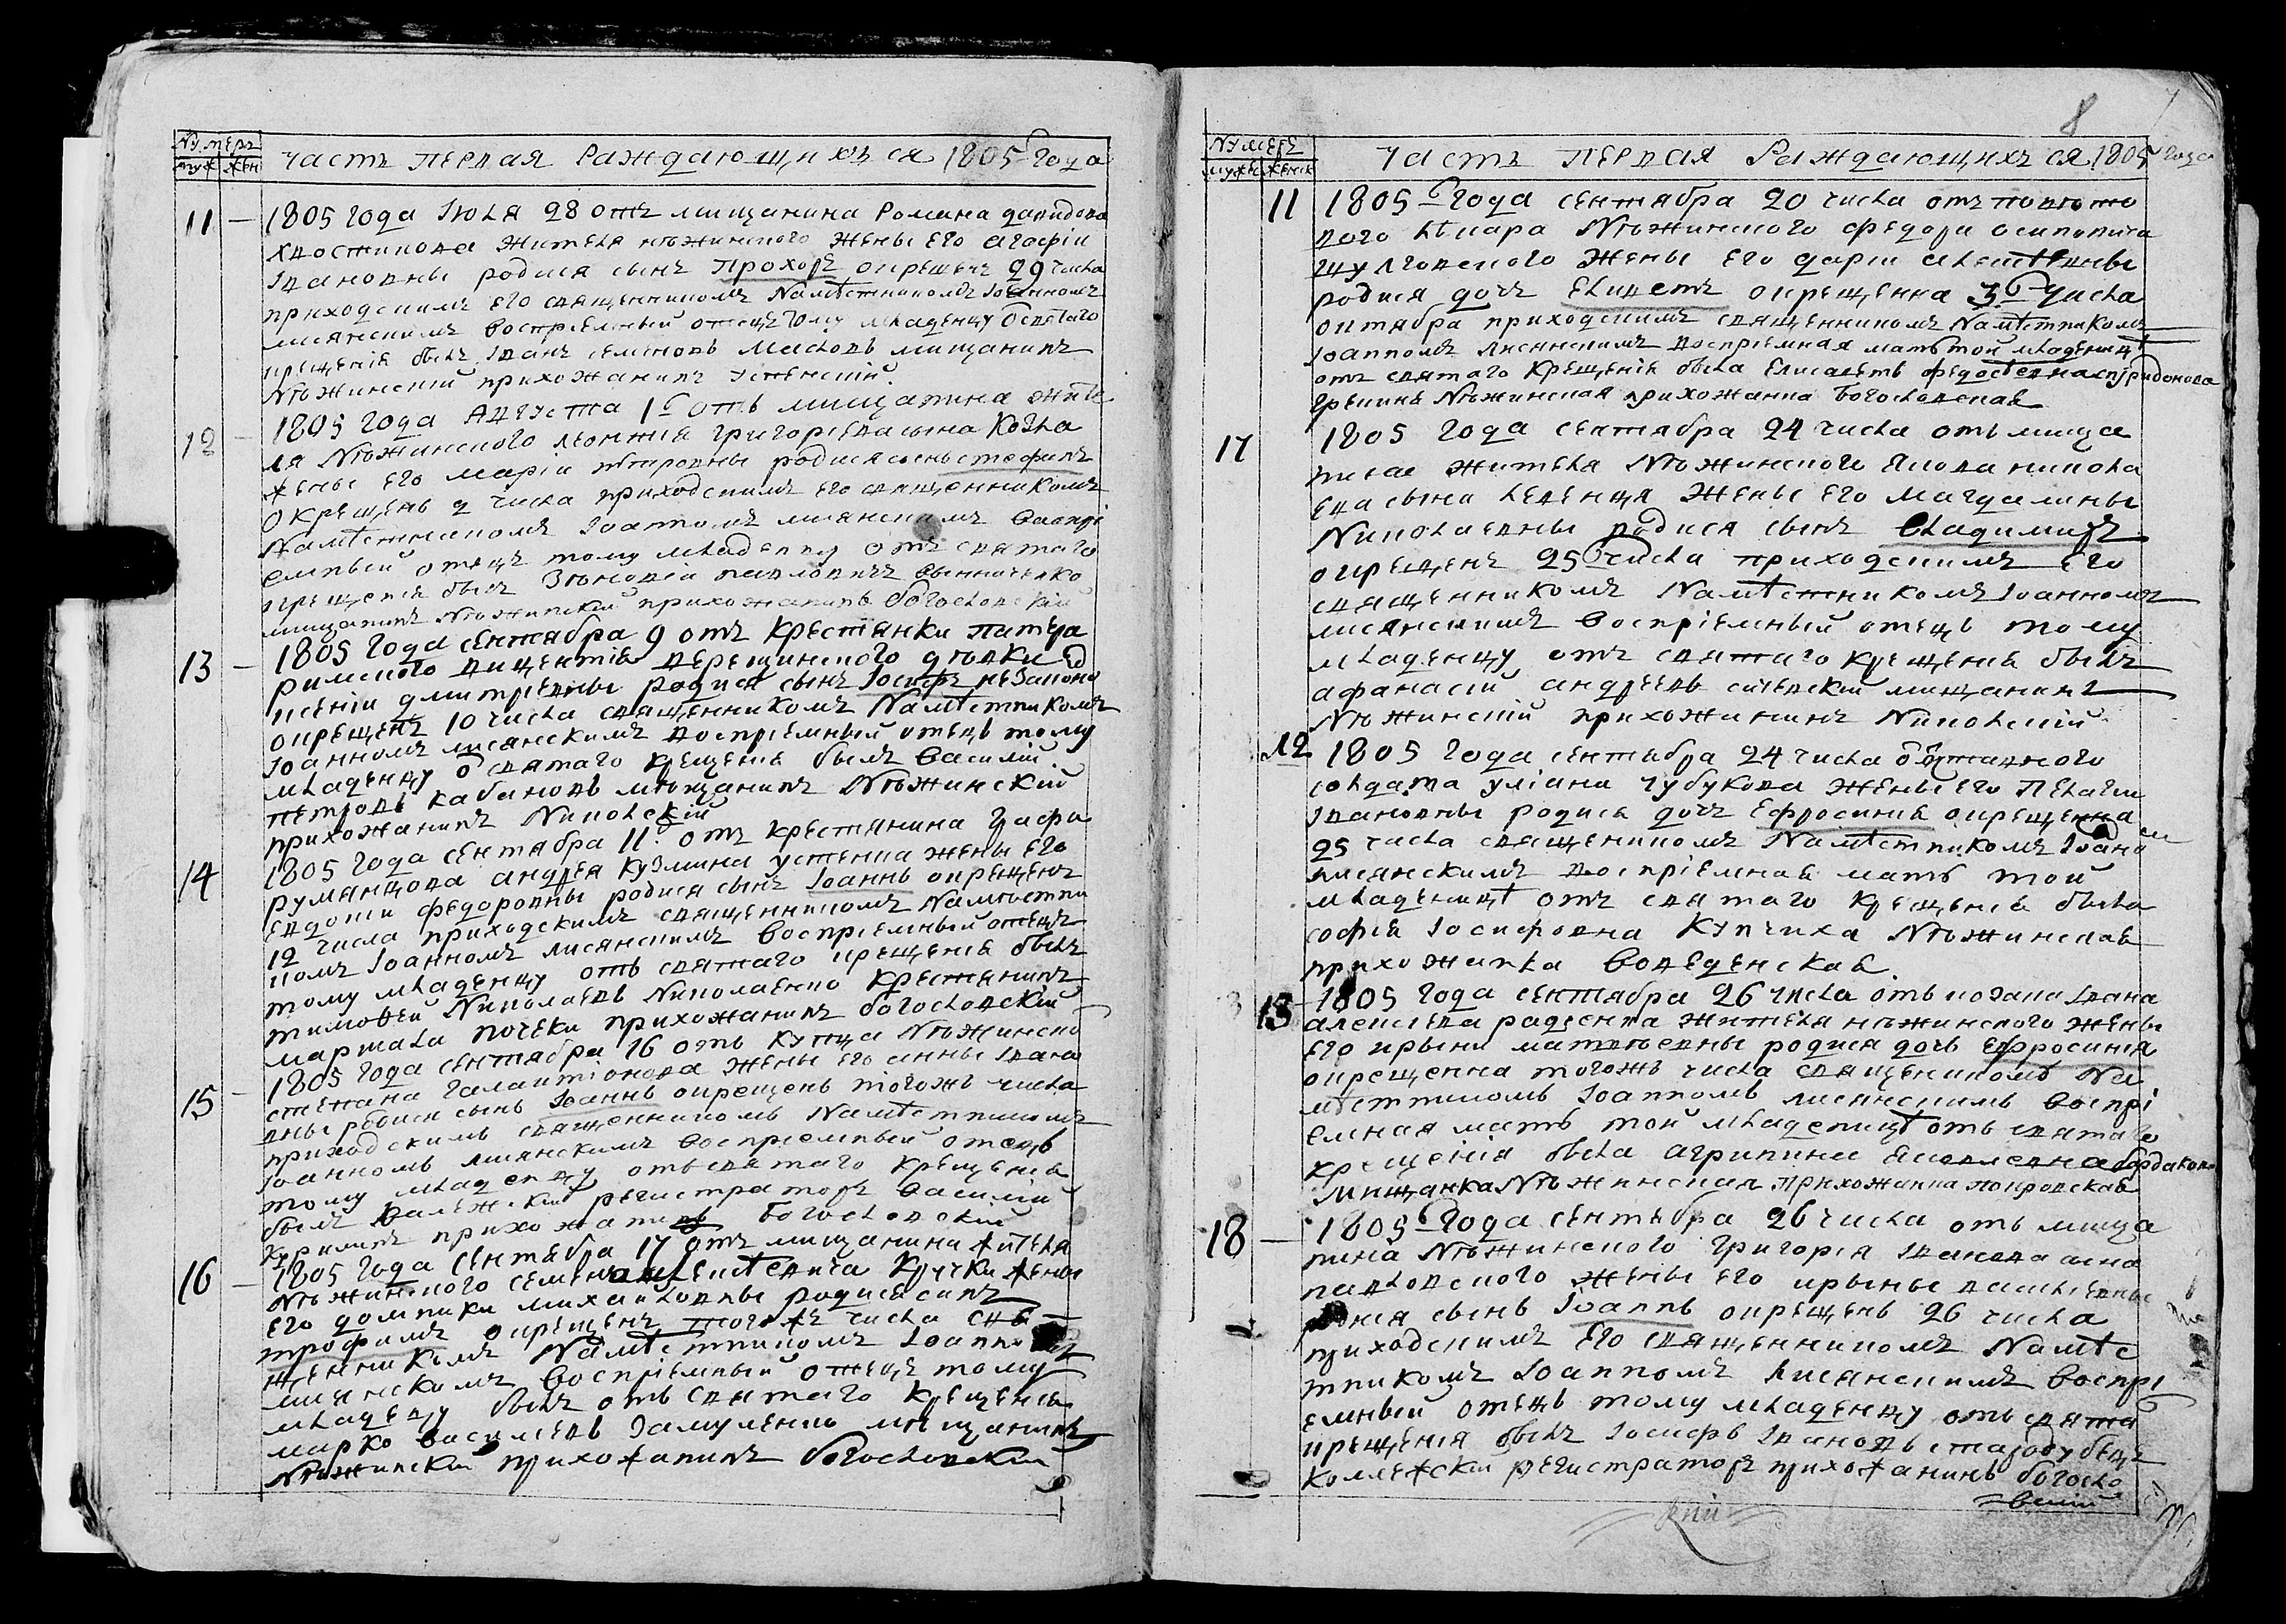 Nумеръ
муж жен
часть первая раждающихъся 1805 года
11 – 1805 года июля 28 отъ мищанина романа давидова
хвостикова жителя нѣжинского жены его агафіи
ивановны родися сынъ Прохоръ окрещенъ 29 числа
приходскимъ его священникомъ Намѣстникомъ Іоанномъ
лисянскимъ воспріемный отецъ тому младенцу о святаго
крещенія былъ иванъ семеновъ масловъ мищанинъ
Нѣжинскій прихожанинъ успенскій.
12 – 1805 года Августа 1 отъ мищанина жите
ля Нѣжинского леонтія григоріева сына Козла
жены его маріи петровны родися сынъ стефанъ
окрещенъ 2 числа приходскимъ его священникомъ
Намѣстникомъ Іоанномъ лисянскимъ воспрі
емный отецъ тому младенцу отъ святаго
крещенія былъ павловичъ
мищанинъ Нѣжинскій прихожанинъ богословскій
13 – 1805 года сентября 9 отъ крестянки
римского викентія дѣвки ев
ксеніи дмитріевны родися сынъ Іосифъ незаконо
окрещенъ 10 числа священникомъ Намѣстникомъ
Іоанномъ лисянскимъ воспріемный отецъ тому
младенцу о святаго крещенія былъ василій
петровъ кабановъ мѣщанинъ Нѣжинскій
прихожанинъ Николскій
14 1805 года сентября 11 отъ крестянина графа
румянцова андрея кузмина устенка жены его
евдокіи федоровны родися сынъ Іоаннъ окрещенъ
12 числа приходскимъ священникомъ Намѣстни
комъ Іоанномъ лисянскимъ воспріемный отецъ
тому младенцу отъ святаго крещенія былъ
тимофей Николаевъ Николаенко крестянинъ
маршала почеки прихожанинъ богословскій
15 – 1805 года сентября 16 отъ купца Нѣжинско
стефана галактіонова жены его анны ивано
вны родися сынъ Іоаннъ окрещенъ тогожъ числа
приходскимъ священникомъ Намѣстникомъ
Іоанномъ лисянскимъ воспріемный отецъ
тому младенцу отъ святаго крещенія
былъ регистраторъ василій
прихожанинъ богословскій
16 – 1805 года сентября 17 отъ мищанина жителя
Нѣжинского семена алексѣевича кручки жены
его домники михайловны родися синъ
трофимъ окрещенъ тогожъ числа свя
щенникомъ Намѣстникомъ Іоанномъ
лисянскомъ воспріемный отецъ тому
младенцу былъ отъ святаго крещенія
марко василіевъ замуленко мищанинъ
Нѣжинскій прихожанинъ богословскій
8
Nумеръ
мужес женск
часть первая раждающихъся 1805 года
11 1805 года сентября 20 числа отъ повѣто
вого лѣкара Нѣжинского федора осиповича
шулговского жены его даріи алексѣевны
родися дочъ Елисаветъ окрещенна 3 числа
октября приходскимъ священникомъ Намѣстникомъ
Іоанномъ лисянскимъ воспріемная матъ той младеницѣ
отъ святаго крещенія была Елисаветъ федосѣевна спиридонова
грекинѣ Нѣжинская прихожанка богословская
17 1805 года сентября 24 числа отъ мища
нина жителя Нѣжинского якова никола
ева сына леденця жены его магдалины
Николаевны родися сынъ владимиръ
окрещенъ 25 числа приходскимъ его
священникомъ Намѣстникомъ Іоанномъ
лисянскимъ воспріемный отецъ тому
младенцу отъ святаго крещенія былъ
афанасій андреевъ сѣевскій мищанинъ
Нѣжинскій прихожанинъ Николскій
12 1805 года сентября 24 числа отъ отставного
солдата уліана чубукова жены его Пелагіи
ивановны родися дочъ Ефросинія окрещенна
25 числа священикомъ Намѣстникомъ Іоанном
лисянскимъ воспріемная матъ той
младеницѣ отъ святаго крещенія была
софія Іосифовна купчиха Нѣжинская
прихожанка воведенская.
13 – 1805 года сентября 26 числа отъ козака ивана
алексіева радченка жителя нѣжинского жены
его ирыни матвѣевны родися дочь Ефросинія
окрещенна тогожъ числа священикомъ На
мѣстникомъ Іоанномъ лисянскимъ воспрі
емная мать той младеницѣ отъ святаго
крещенія была агрипина яковлевна
мищанка Нѣжинская прихожанка покровская
18 – 1805 года сентября 26 числа отъ мища
нина Нѣжинского григорія иванова сына
павловского жены его ирыны василіевны
родися сынъ Іоаннъ окрещенъ 26 числа
приходскимъ его священникомъ Намѣс
тникомъ Іоанномъ лисянскимъ воспрі
емный отецъ тому младенцу отъ свята
крещенія былъ Іосифъ ивановъ стародубецъ
коллежскій регистраторъ прихожанинъ богосло
вский